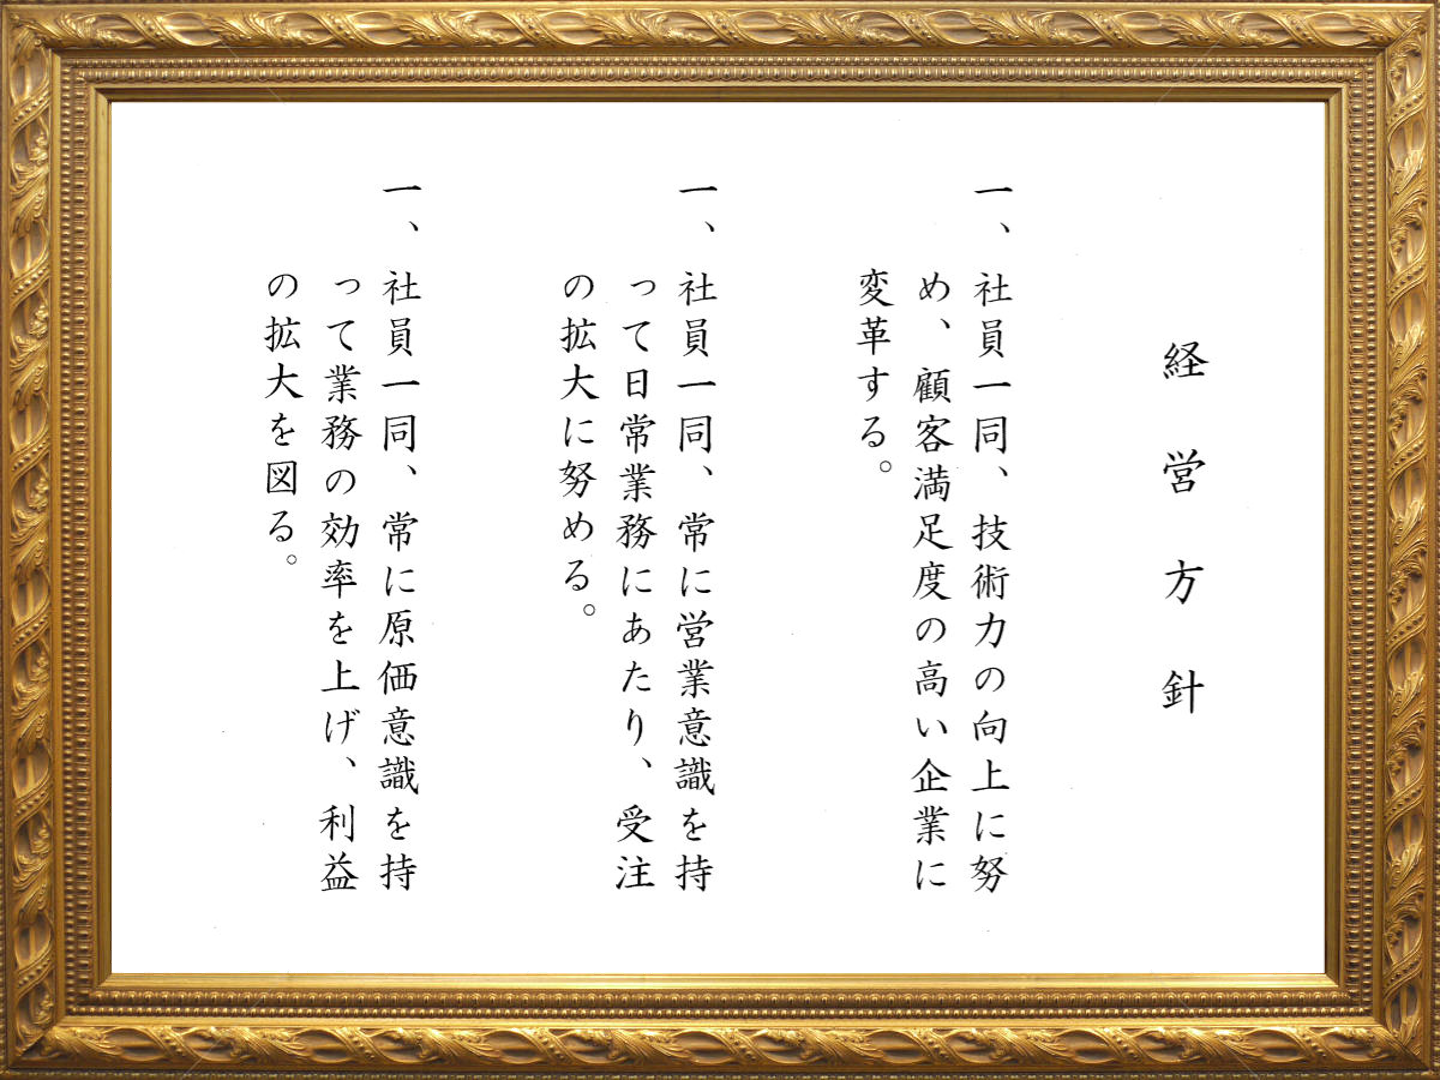 経営方針
一、社員一同、技術力の向上に努
め、顧客満足度の高い企業に
変革する。
一、社員一同、常に営業意識を持
って日常業務にあたり、受注
の拡大に努める。
一、社員一同、常に原価意識を持
って業務の効率を上げ、利益
の拡大を図る。